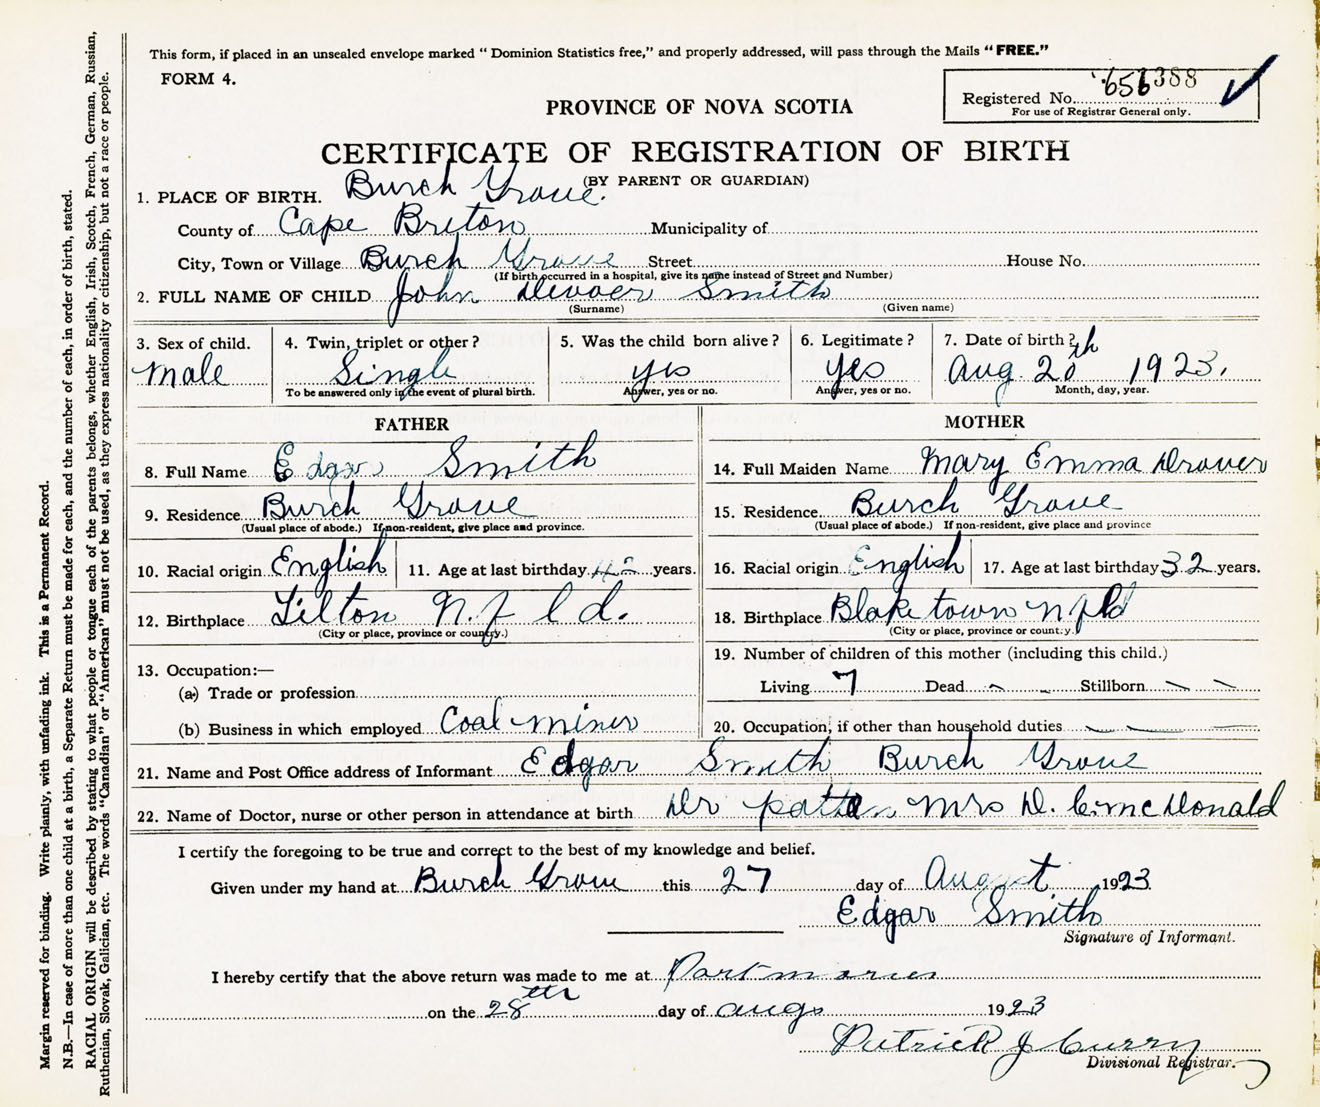 This form, if placed in an unsealed envelope marked "Dominion Statistics free," and properly addressed, will pass through the Mails "FREE."
FORM 4.
Registered No. 656388
For use of Registrar General only.
PROVINCE OF NOVA SCOTIA
CERTIFICATE OF REGISTRATION OF BIRTH
(BY PARENT OR GUARDIAN)
1. PLACE OF BIRTH. Burch Grove.
County of Cape Breton Municipality of
City, Town or Village Burch Grove Street House No.
(If birth occurred in a hospital, give its name instead of Street and Number)
2. FULL NAME OF CHILD John Smith
(Surname) (Given name)
3. Sex of child. 4. Twin, triplet or other? 5. Was the child born alive? 6. Legitimate? 7. Date of birth?
male Single yes yes Aug 20th 1923.
To be answered only in the event of plural birth. Answer, yes or no. Answer, yes or no. Month, day, year.
FATHER
8. Full Name Edgar Smith
9. Residence Burch Grove
(Usual place of abode.) If non-resident, give place and province.
10. Racial origin English 11. Age at last birthday 42 years.
12. Birthplace Tilton N.f l d.
(City or place, province or country.)
13. Occupation:—
(a) Trade or profession
(b) Business in which employed Coal miner
MOTHER
14. Full Maiden Name Mary Emma Drover
15. Residence Burch Grove
(Usual place of abode.) If non-resident, give place and province
16. Racial origin English 17. Age at last birthday 32 years.
18. Birthplace Blaketown nfld
(City or place, province or country.)
19. Number of children of this mother (including this child.)
Living 7 Dead Stillborn
20. Occupation, if other than household duties
21. Name and Post Office address of Informant Edgar Smith Burch Grove
22. Name of Doctor, nurse or other person in attendance at birth Dr patten Mrs D. C. mcDonald
I certify the foregoing to be true and correct to the best of my knowledge and belief.
Given under my hand at Burch Grove this 27 day of August 1923
Edgar Smith
Signature of Informant.
I hereby certify that the above return was made to me at Portmorien
on the 28th day of augs 1923
Patrick J Curry
Divisional Registrar.
Margin reserved for binding. Write plainly, with unfading ink. This is a Permanent Record.
N.B.—In case of more than one child at a birth, a Separate Return must be made for each, and the number of each, in order of birth, stated.
RACIAL ORIGIN will be described by stating to what people or tongue each of the parents belongs, whether English, Irish, Scotch, French, German, Russian,
Ruthenian, Slovak, Galician, etc. The words "Canadian" or "American" must not be used, as they express nationality or citizenship, but not a race or people.